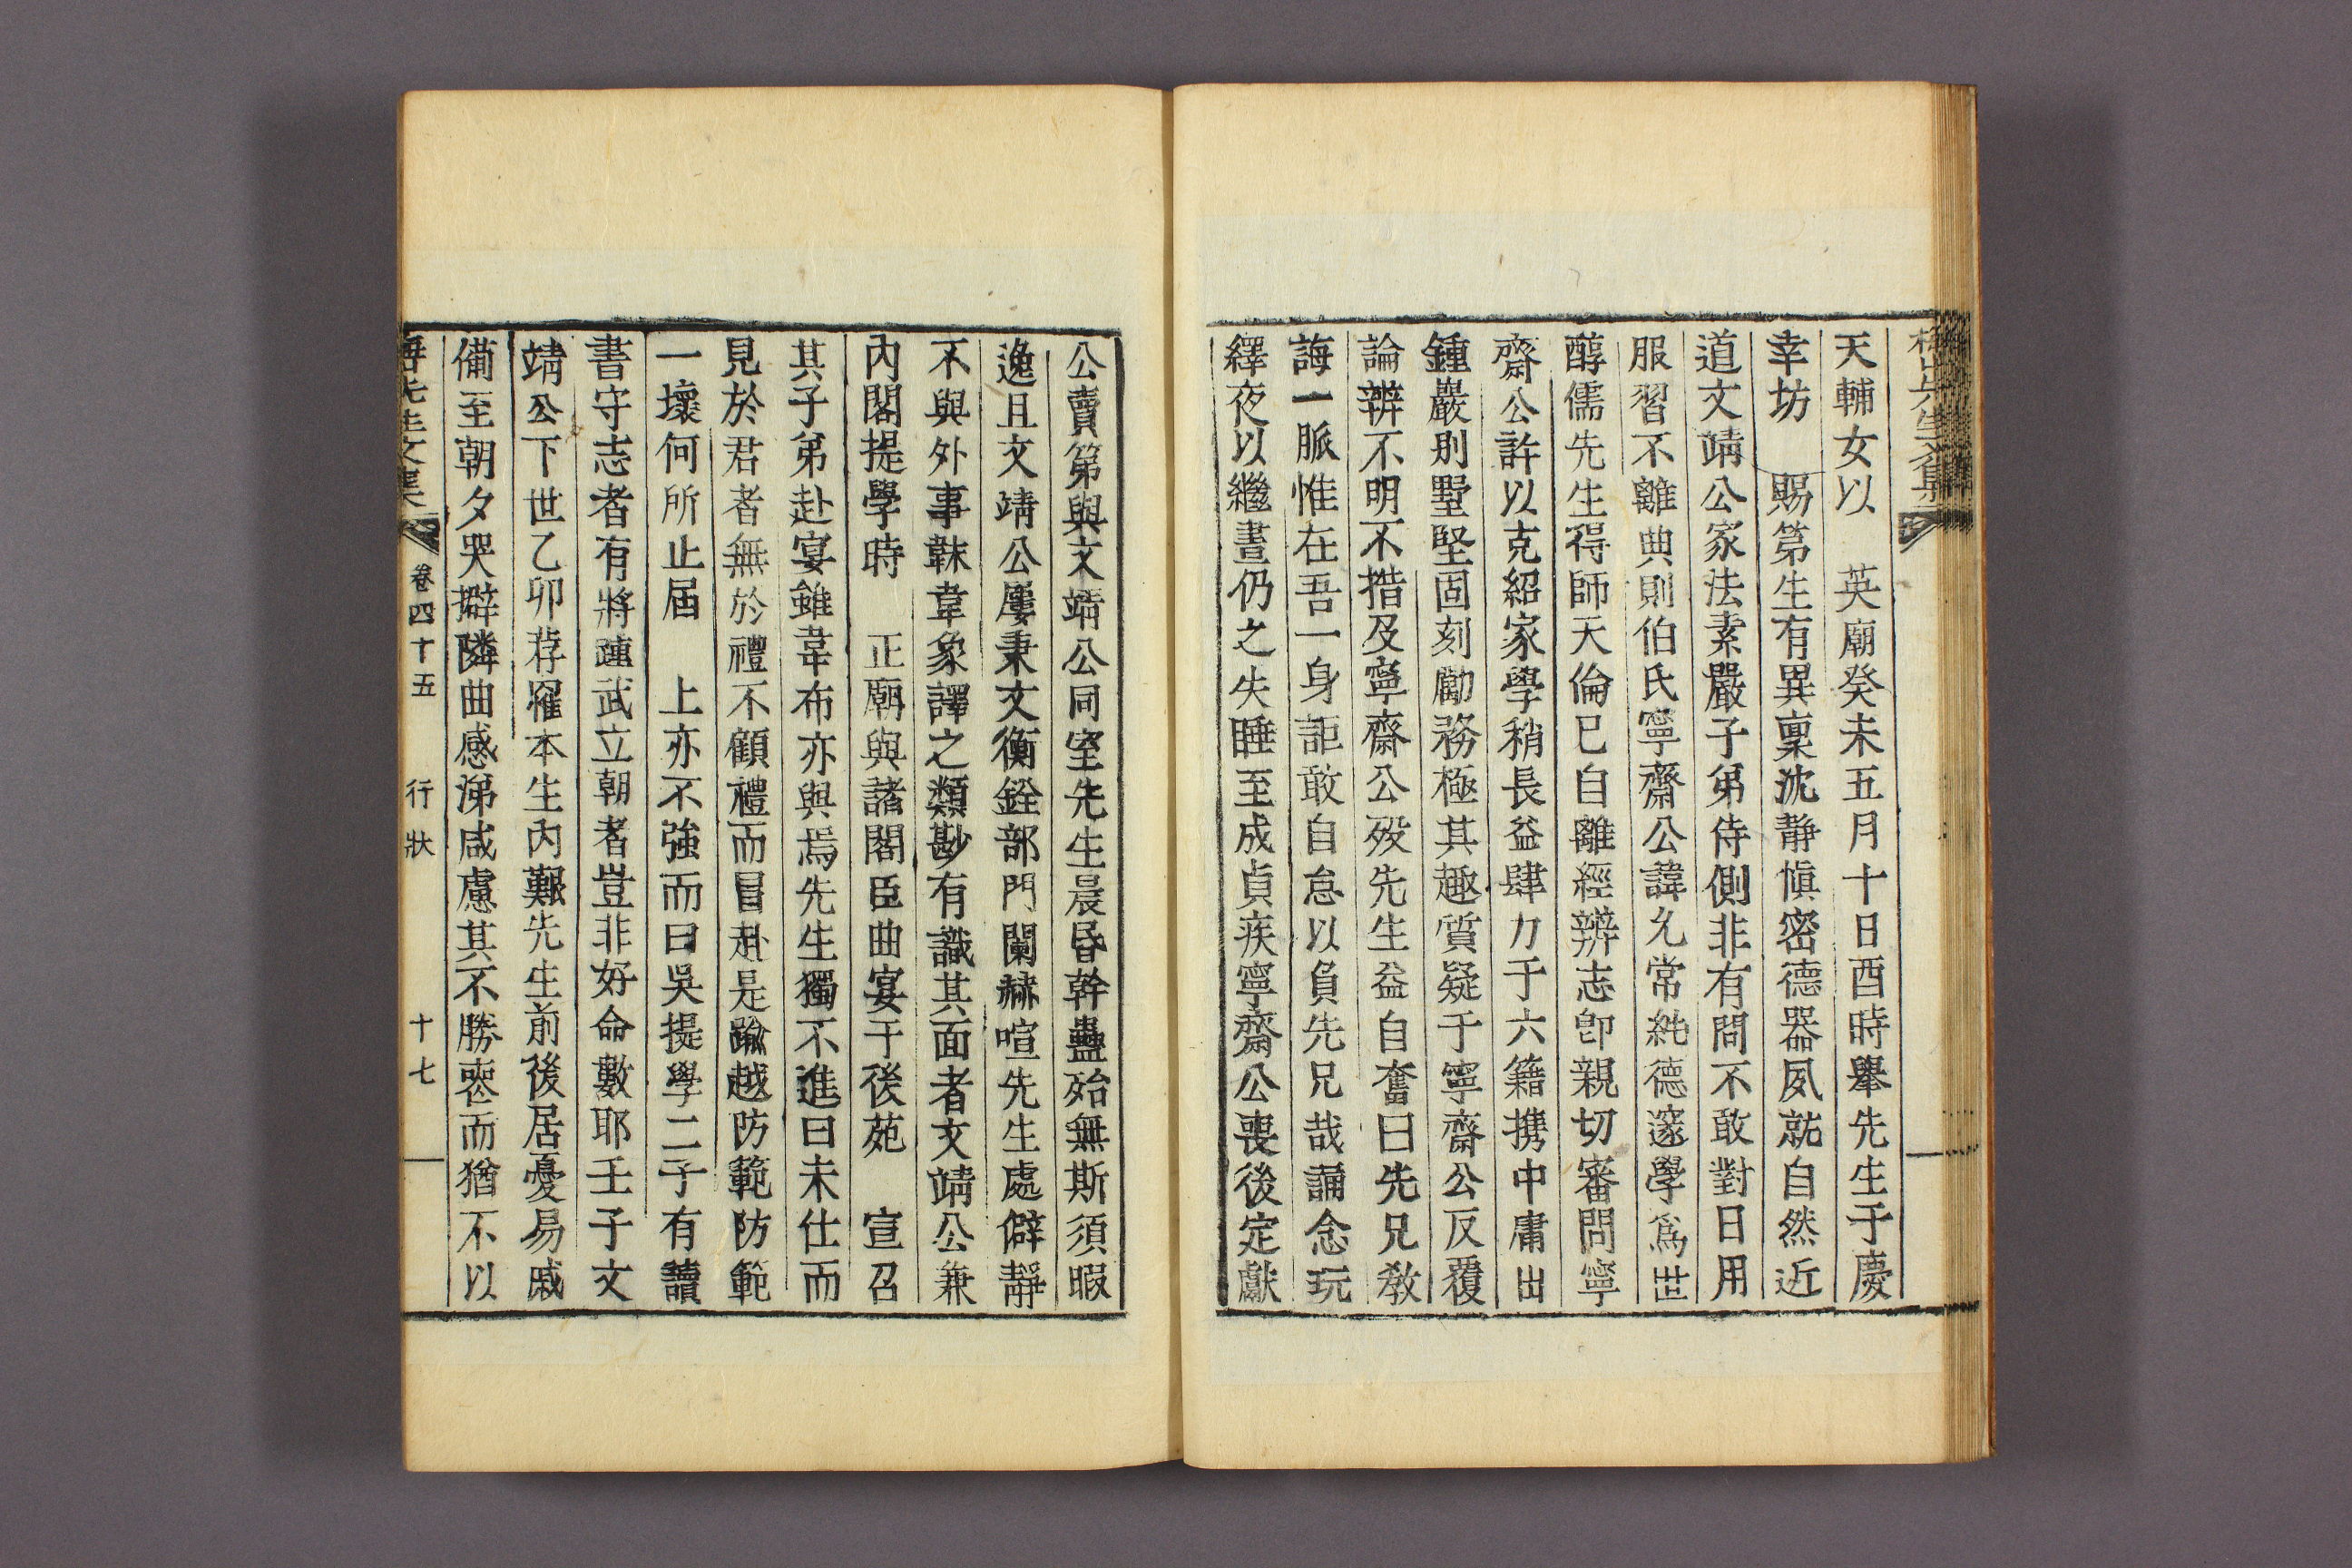 天輔女以　英廟癸未五月十日酉時舉先生于慶
幸坊　賜第生有異稟沈靜愼密德器夙就自然近
道文靖公家法素嚴子弟侍側非有問不敢對日用
服習不離典則伯氏寧齋公諱允常純德邃學爲世
醇儒先生得師天倫已自離經辨志卽親切審問寧
齋公許以克紹家學稍長益肆力于六籍携中庸出
鍾巖別墅堅固刻勵務極其趣質疑于寧齋公反覆
論辨不明不措及寧齋公歿先生益自奮曰先兄教
誨一脈惟在吾一身詎敢自怠以負先兄哉誦念玩
繹夜以繼晝仍之失睡至成貞疾寧齋公喪後定獻
公賣第與文靖公同室先生晨昏幹蠱殆無斯須暇
逸且文靖公屢秉文衡銓部門闌赫喧先生處僻靜
不與外事韎韋象譯之類尠有識其面者文靖公兼
內閣提學時　正廟與諸閣臣曲宴于後苑　宣召
其子弟赴宴雖韋布亦與焉先生獨不進曰未仕而
見於君者無於禮不顧禮而冒赴是踰越防範防範
一壞何所止屆　上亦不強而曰吳提學二子有讀
書守志者有將踵武立朝者豈非好命數耶壬子文
靖公下世乙卯荐罹本生內艱先生前後居憂易戚
備至朝夕哭擗隣曲感涕咸慮其不勝喪而猶不以
先生文集　卷四十五　行狀　十七